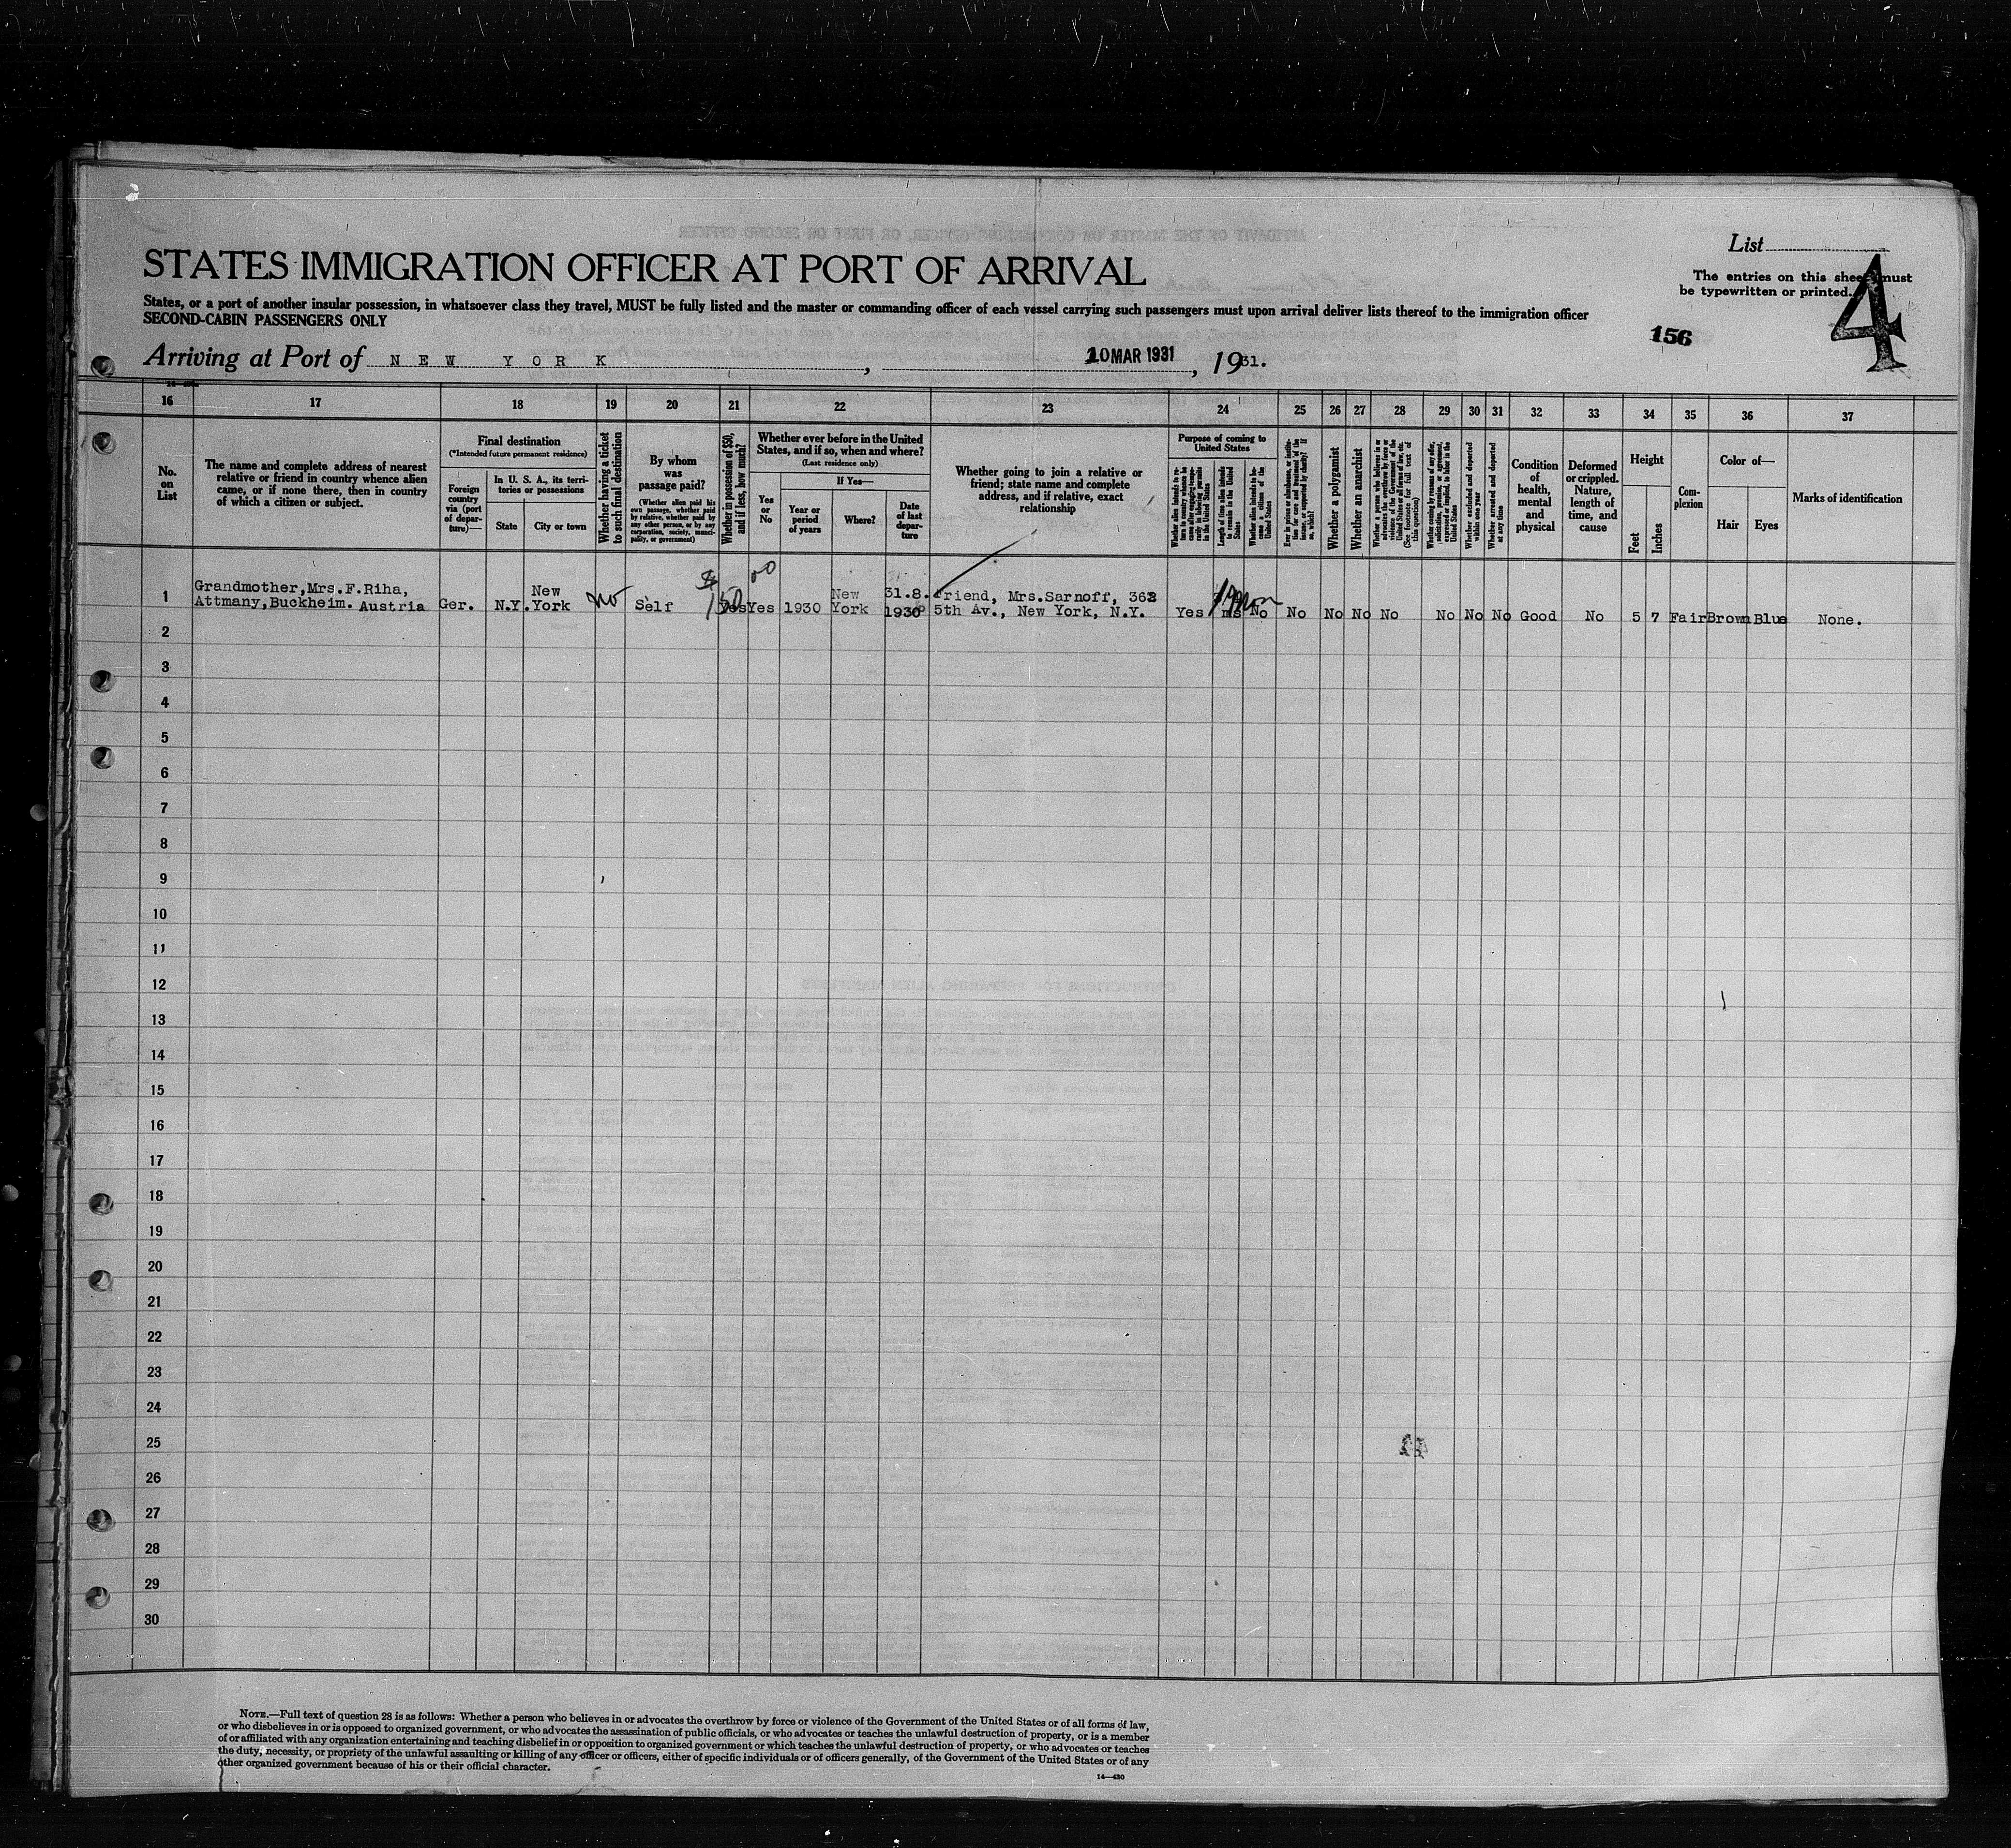 List
The entries on this sheet must
be typewritten or printed.
4
STATES IMMIGRATION OFFICER AT PORT OF ARRIVAL
States, or a port of another insular possession, in whatsoever class they travel, MUST be fully listed and the master or commanding officer of each vessel carrying such passengers must upon arrival deliver lists thereof to the immigration officer
SECOND-CABIN PASSENGERS ONLY
156
Arriving at Port of NEW YORK, 10 MAR 1931, 1931.
16 17 18 19 20 21 22 23 24 25 26 27 28 29 30 31 32 33 34 35 36 37
No. on List
The name and complete address of nearest relative or friend in country whence alien came, or if none there, then in country of which a citizen or subject.
Final destination
(*Intended future permanent residence)
Foreign country via (port of departure)—
In U. S. A., its territories or possessions
State
City or town
Whether having a ticket to such final destination
By whom was passage paid?
(Whether alien paid his own passage, whether paid by relative, whether paid by any other person, or by any corporation, society, municipality, or government)
Whether in possession of $50, and if less, how much?
Whether ever before in the United States, and if so, when and where?
(Last residence only)
Yes or No
If Yes—
Year or period of years
Where?
Date of last departure
Whether going to join a relative or friend; state name and complete address, and if relative, exact relationship
Purpose of coming to United States
Whether alien intends to return to country whence he came after engaging temporarily in laboring pursuits in the United States
Length of time alien intends to remain in the United States
Whether alien intends to become citizen of the United States
Ever in prison or almshouse, or institution for care and treatment of the insane, or supported by charity? If so, which?
Whether a polygamist
Whether an anarchist
Whether a person who believes in or advocates the overthrow by force or violence of the Government of the United States or all forms of law, etc. (See footnote for full text of this question)
Whether coming by reason of any offer, solicitation, promise, or agreement, expressed or implied, to labor in the United States
Whether excluded and deported within one year
Whether arrested and deported at any time
Condition of health, mental and physical
Deformed or crippled. Nature, length of time, and cause
Height
Feet
Inches
Complexion
Color of—
Hair
Eyes
Marks of identification
1 Grandmother, Mrs.F.Riha, Attmany, Buckheim. Austria Ger. N.Y. New York No Self $150 00 Yes Yes 1930 New York 31.8. 1930 friend, Mrs.Sarnoff, 362 5th Av., New York, N.Y. Yes ms No No No No No No No No Good No 5 7 Fair Brown Blue None.
2
3
4
5
6
7
8
9
10
11
12
13
14
15
16
17
18
19
20
21
22
23
24
25
26
27
28
29
30
NOTE.—Full text of question 28 is as follows: Whether a person who believes in or advocates the overthrow by force or violence of the Government of the United States or of all forms of law,
or who disbelieves in or is opposed to organized government, or who advocates the assassination of public officials, or who advocates or teaches the unlawful destruction of property, or is a member
of or affiliated with any organization entertaining and teaching disbelief in or opposition to organized government or which teaches the unlawful destruction of property, or who advocates or teaches
the duty, necessity, or propriety of the unlawful assaulting or killing of any officer or officers, either of specific individuals or of officers generally, of the Government of the United States or of any
other organized government because of his or their official character.
14—430